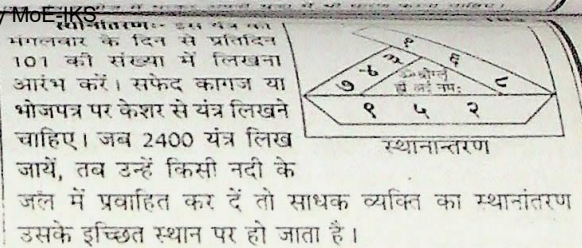 MoE-IKS
स्थानांतरण:- इस यंत्र को
मंगलवार के दिन से प्रतिदिन
101 की संख्या में लिखना
आरंभ करें। सफेद कागज या
भोजपत्र पर केशर से यंत्र लिखने
चाहिए। जब 2400 यंत्र लिख
जायें, तब उन्हें किसी नदी के
जल में प्रवाहित कर दें तो साधक व्यक्ति का स्थानांतरण
उसके इच्छित स्थान पर हो जाता है।
१
७ ४ ३ ६ ८
९ ५ २
स्थानान्तरण